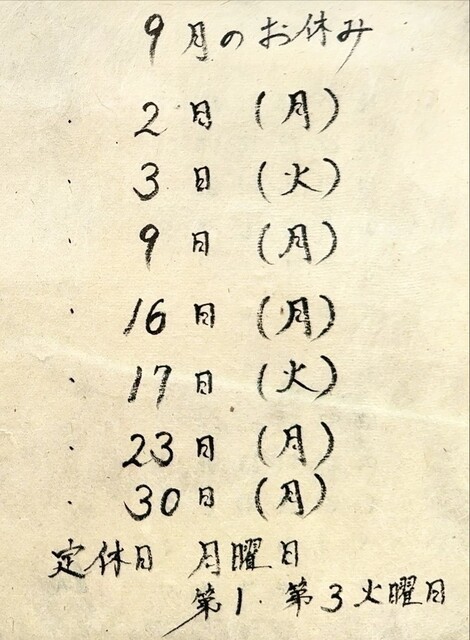 9月のお休み
・ 2日 (月)
・ 3日 (火)
・ 9日 (月)
・ 16日 (月)
・ 17日 (火)
・ 23日 (月)
・ 30日 (月)
定休日 月曜日
第1.第3火曜日